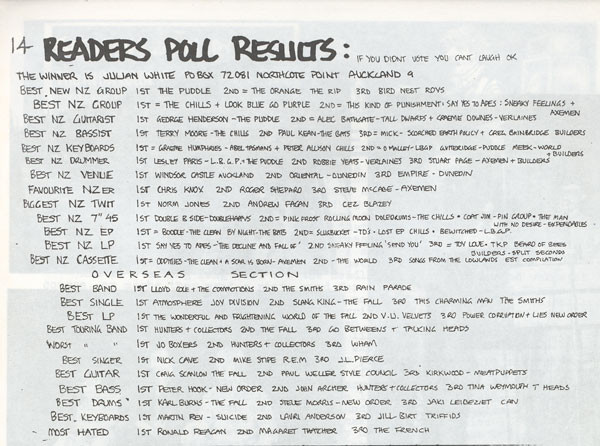 14 READERS POLL RESULTS: IF YOU DIDNT VOTE YOU CANT LAUGH OK
THE WINNER IS JULIAN WHITE PO BOX 72081 NORTHCOTE POINT AUCKLAND 9
BEST NEW NZ GROUP 1ST THE PUDDLE 2ND = THE ORANGE THE RIP 3RD BIRD NEST ROYS
BEST NZ GROUP 1ST = THE CHILLS + LOOK BLUE GO PURPLE 2ND = THIS KIND OF PUNISHMENT + SAY YES TO APES : SNEAKY FEELINGS +
AXEMEN
BEST NZ GUITARIST 1ST GEORGE HENDERSON - THE PUDDLE 2ND = ALEC BATHGATE - TALL DWARFS + GRAEME DOWNES - VERLAINES
BEST NZ BASSIST 1ST TERRY MOORE - THE CHILLS 2ND PAUL KEAN - THE BATS 3RD = MICK - SCORCHED EARTH POLICY + GREG BAINBRIDGE BUILDERS
BEST NZ KEYBOARDS 1ST = GRAEME HUMPHRIES - ABEL TASMANS + PETER ALLISON CHILLS 2ND = O'MALLEY - LBGP GUTTERIDGE - PUDDLE MEEK - WORLD
+ BUILDERS
BEST NZ DRUMMER 1ST LESLEY PARIS - L.B.G.P. + THE PUDDLE 2ND ROBBIE YEATS - VERLAINES 3RD STUART PAGE - AXEMEN + BUILDERS
BEST NZ VENUE 1ST WINDSOR CASTLE AUCKLAND 2ND ORIENTAL - DUNEDIN 3RD EMPIRE - DUNEDIN
FAVOURITE NZER 1ST CHRIS KNOX 2ND ROGER SHEPARD 3RD STEVE McCABE - AXEMEN
BIGGEST NZ TWIT 1ST NORM JONES 2ND ANDREW FAGAN 3RD CEZ BLAZEY
BEST NZ 7" 45 1ST DOUBLE B SIDE - DOUBLEHAPPYS 2ND = PINK FROST ROLLING MOON DOLEDRUMS - THE CHILLS * COAT JIM - PIN GROUP * THE MAN
WITH NO DESIRE - EXPENDABLES
BEST NZ EP 1ST = BOODLE - THE CLEAN BY NIGHT - THE BATS 2ND = SLUGBUCKET - TD'S + LOST EP CHILLS + BEWITCHED - L.B.G.P.
BEST NZ LP 1ST SAY YES TO APES - 'THE DECLINE AND FALL OF' 2ND SNEAKY FEELING 'SEND YOU' 3RD = TOY LOVE + T.K.P BEARD OF BEES
BUILDERS - SPLIT SECONDS
BEST NZ CASSETTE 1ST = ODDITIES - THE CLEAN + A SCAR IS BORN - AXEMEN 2ND - THE WORLD 3RD SONGS FROM THE LOWLANDS EST COMPILATION
OVERSEAS SECTION
BEST BAND 1ST LLOYD COLE + THE COMMOTIONS 2ND THE SMITHS 3RD RAIN PARADE
BEST SINGLE 1ST ATMOSPHERE JOY DIVISION 2ND SLANG KING - THE FALL 3RD THIS CHARMING MAN THE SMITHS
BEST LP 1ST THE WONDERFUL AND FRIGHTENING WORLD OF THE FALL 2ND V.U. VELVETS 3RD POWER CORRUPTION + LIES NEW ORDER
BEST TOURING BAND 1ST HUNTERS + COLLECTORS 2ND THE FALL 3RD GO BETWEENS + TALKING HEADS
WORST " " 1ST JO BOXERS 2ND HUNTERS + COLLECTORS 3RD WHAM
BEST SINGER 1ST NICK CAVE 2ND MIKE STIPE R.E.M 3RD J.L. PIERCE
BEST GUITAR 1ST CRAIG SCANLON THE FALL 2ND PAUL WELLER STYLE COUNCIL 3RD KIRKWOOD - MEATPUPPETS
BEST BASS 1ST PETER HOOK - NEW ORDER 2ND JOHN ARCHER HUNTERS + COLLECTORS 3RD TINA WEYMOUTH T HEADS
BEST DRUMS 1ST KARL BURNS - THE FALL 2ND STEVE MORRIS - NEW ORDER 3RD JAKI LEIBEZIET CAN
BEST KEYBOARDS 1ST MARTIN REV - SUICIDE 2ND LAURI ANDERSON 3RD JILL BIRT TRIFFIDS
MOST HATED 1ST RONALD REAGAN 2ND MAGARET THATCHER 3RD THE FRENCH